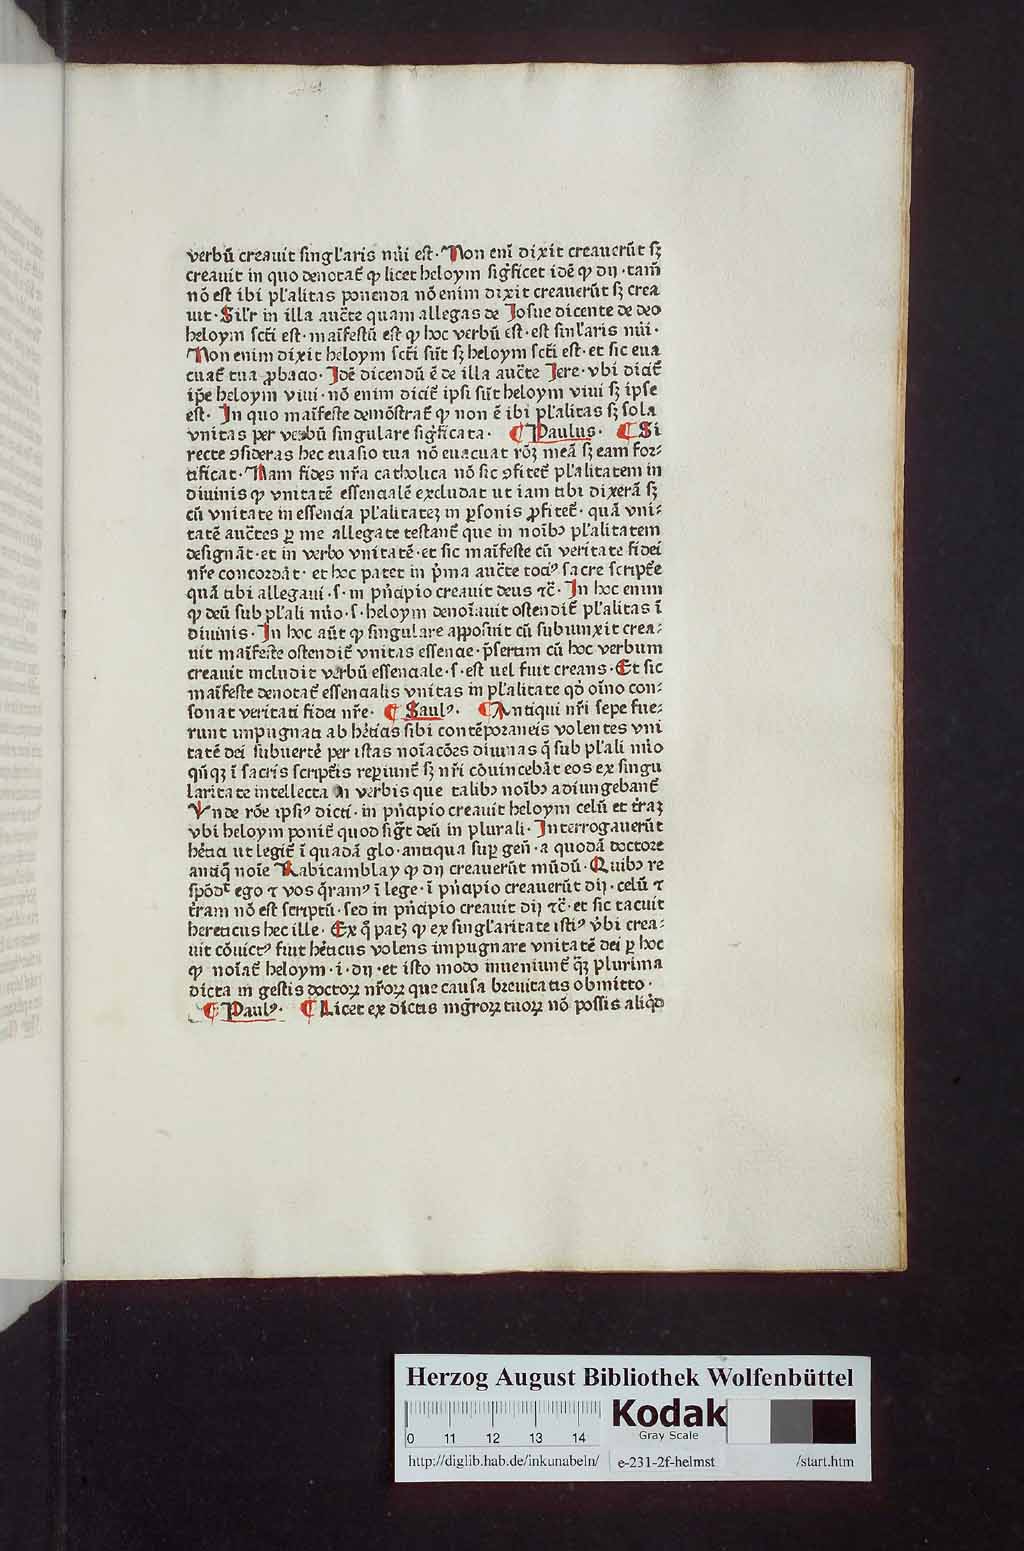 verbū creauit singl'aris nūi est· Non enī dixit creauerūt sꝫ
creauit in quo denotat̄ ꝙ licet heloym sig̅ficet idē ꝙ dij· tam̄
nō est ibi pl'alitas ponenda nō enim dixit creauerūt sꝫ crea
uit· Sil'r in illa auc̄te quam allegas de Josue dicente de deo
heloym sc̄ti est· maīfestū est ꝙ hoc verbū est· est sinl'aris nūi·
Non enim dixit heloym sc̄ti sūt sꝫ heloym sc̄ti est· et sic eua
cuat̄ tua ꝓbacio· Jdē dicendū ē de illa auc̄te Jere· vbi dicit̄
ip̄e heloym viui· nō enim dicit̄ ipsi sūt heloym viui sꝫ ipse
est· Jn quo maīfeste demōstrat̄ ꝙ non ē ibi pl'alitas sꝫ sola
vnitas per verbū singulare sig̅ficata· ¶ Paulus· ¶ Si
recte ꝯsideras hec euasio tua nō euacuat rōꝫ meā sꝫ eam for⸗
tificat· Nam fides nr̄a catholica nō sic ꝯfitet̄ pl'alitatem in
diuinis ꝙ vnitatē essencialē excludat ut iam tibi dixerā sꝫ
cū vnitate in essencia pl'alitateꝫ in ꝑsonis ꝓfitet̄· quā vni⸗
tatē auc̄tes ꝑ me allegate testant̄ que in noībꝫ pl'alitatem
designāt· et in verbo vnitatē· et sic maīfeste cū veritate fidei
nr̄e concordāt· et hoc patet in p̄ma auc̄te tociꝰ sacre script̄e
quā tibi allegaui·s· in pn̄cipio creauit deus ⁊c̄· Jn hoc enim
ꝙ deū sub pl'ali nūo·s· heloym denoīauit ostendit̄ pl'alitas ī
diuinis· Jn hoc aūt ꝙ singulare apposuit cū subiunxit crea⸗
uit maīfeste ostendit̄ vnitas essencie· p̄sertim cū hoc verbum
creauit includit verbū essenciale·s· est uel fuit creans· Et sic
maīfeste denotat̄ essencialis vnitas in pl'alitate qd̄ oīno con⸗
sonat veritati fidei nr̄e· ¶ Saulꝰ· ¶ Antiqui nr̄i sepe fue⸗
runt impugnati ab hēticis sibi contēporaneis volentes vni
tatē dei subuertē per istas noīacōes diuinas q̄ sub pl'ali nūo
qn̄qꝫ ī sacris script̄is reperiunt̄ sꝫ nr̄i cōuincebāt eos ex singu
laritate intellecta in verbis que talibꝫ noībꝫ adiungebant̄
Vnde rōe ipsiꝰ dicti· in pn̄cipio creauit heloym celū et t̄raꝫ
vbi heloym ponit̄ quod sig̅t deū in plurali· Jnterrogauerūt
hētici ut legit̄ ī quadā glo· antiqua suꝑ gen̄· a quodā doctore
antiq̄ noīe Rabicamblay ꝙ dij creauerūt mūdū· Quibꝫ re
spōdt̄ ego ⁊ vos q̄ramꝰ ī lege· ī pn̄cipio creauerūt dij· celū ⁊
t̄ram nō est scriptū· sed in pn̄cipio creauit dij ⁊c̄· et sic tacuit
hereticus hec ille· Ex q̄ patꝫ ꝙ ex singl'aritate istiꝰ v̄bi crea⸗
uit cōuictꝰ fuit hēticus volens impugnare vnitatē dei ꝑ hoc
ꝙ noīat̄ heloym·i· dij· et isto modo inueniunt̄ q̄ꝫ plurima
dicta in gestis doctoꝝ nr̄oꝝ que causa breuitatis obmitto·
¶ Paulꝰ· ¶ Licet ex dictis mḡroꝝ tuoꝝ nō possis aliq̄d
Herzog August Bibliothek Wolfenbüttel
0 11 12 13 14
Kodak
Gray Scale
http://diglib.hab.de/inkunabeln/ e-231-2f-helmst /start.htm